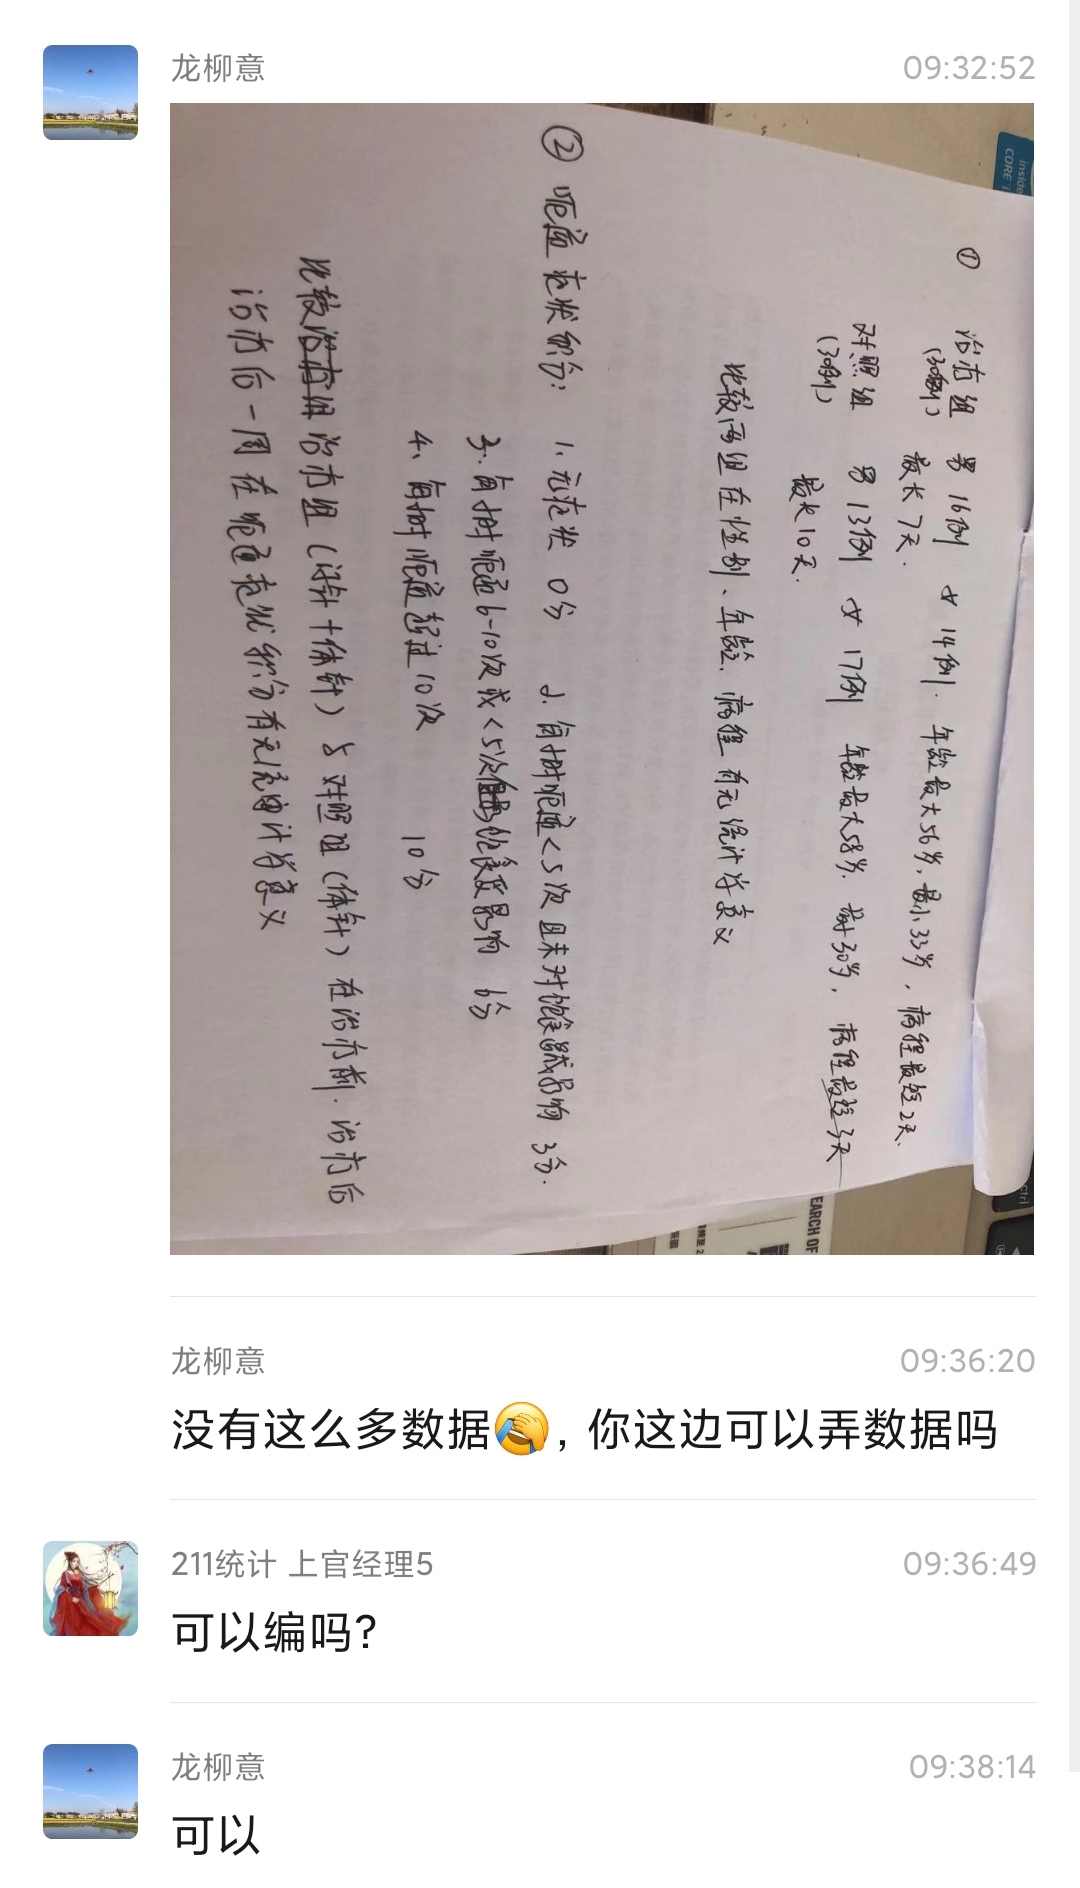 龙柳意
09:32:52
inside
CORE
① 治疗组 男 16例 女 14例. 年龄最大56岁,最小33岁,病程最短2天.
(30例) 最长7天.
对照组 男 13例 女 17例 年龄最大58岁. 最小30岁, 病程最短3天
(30例) 最长10天.
比较两组在性别、年龄、病程 有无统计学意义
② 呃逆症状积分: 1. 无症状 0分 2. 每小时呃逆<5次 且未对饮食造成影响 3分.
3. 每小时呃逆6-10次或<5次 饮食受影响 6分
4、每小时呃逆超过10次 10分
比较治疗组(浮针+体针)与对照组(体针)在治疗前.治疗后
治疗后一周在呃逆症状积分有无统计学意义
EARCH OF
ctrl
龙柳意
09:36:20
没有这么多数据🤦,你这边可以弄数据吗
211统计 上官经理5
09:36:49
可以编吗?
龙柳意
09:38:14
可以